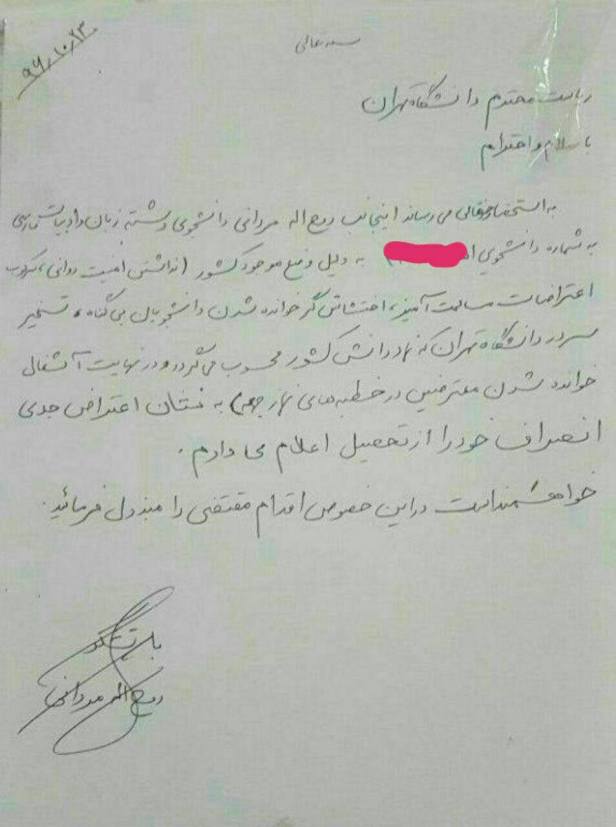 ۹۶/۱۰/۲۳
بسمه تعالی
ریاست محترم دانشگاه تهران
با سلام و احترام
به استحضار عالی می رساند اینجانب روح اله مردانی دانشجوی رشته زبان و ادبیات فارسی
به شماره دانشجویی به دلیل وضع موجود کشور (نداشتن امنیت روانی، سرکوب
اعتراضات مسالمت آمیز، اغتشاش گر خوانده شدن دانشجویان بی گناه، تسخیر
سردر دانشگاه تهران که نماد دانش کشور محسوب می گردد و در نهایت آشغال
خوانده شدن معترضین در خطبه های نماز جمعه) به نشان اعتراض جدی
انصراف خود را از تحصیل اعلام می دارم.
خواهشمند است در این خصوص اقدام مقتضی را مبذول فرمائید.
با تشکر
روح اله مردانی